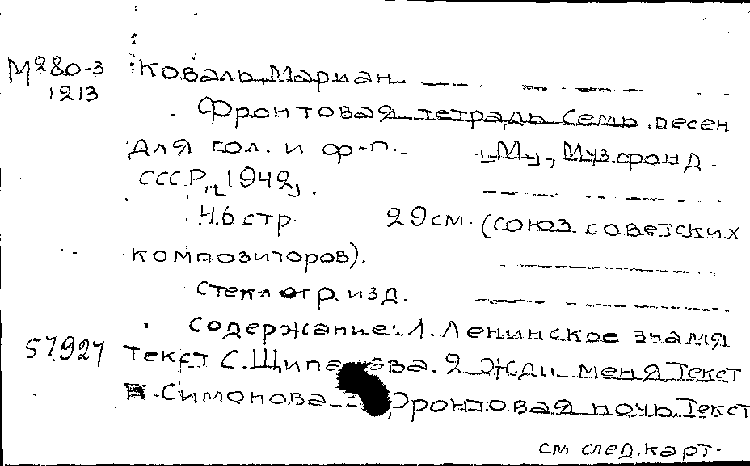 М280-3 Коваль, Мариан.
1213
Фронтовая тетрадь Семь песен
для гол. и ф-п. М., Муз.фонд
СССР, 1942,
46 стр. 29см. (союз советских
композиторов).
стеклогр. изд.
Содержание: 1. Ленинское знамя
57927 текст С. Щипачева. 2 Жди меня Текст
К. Симонова. Фронтовая ночь Текст
см след. карт.